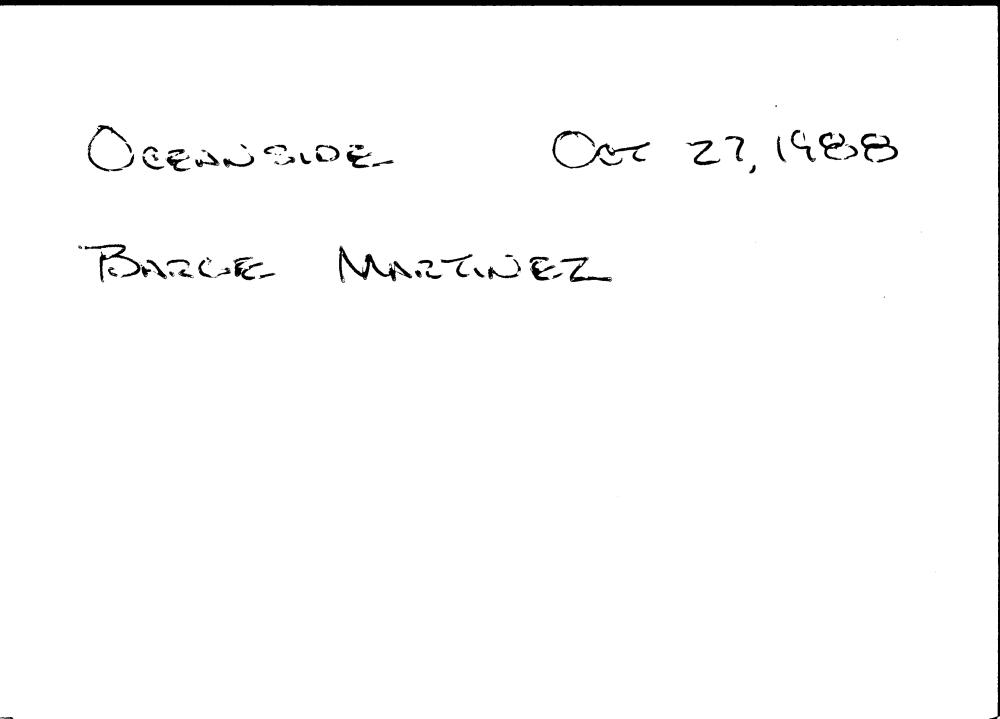 OCEANSIDE OCT 27, 1988
BARGE MARTINEZ